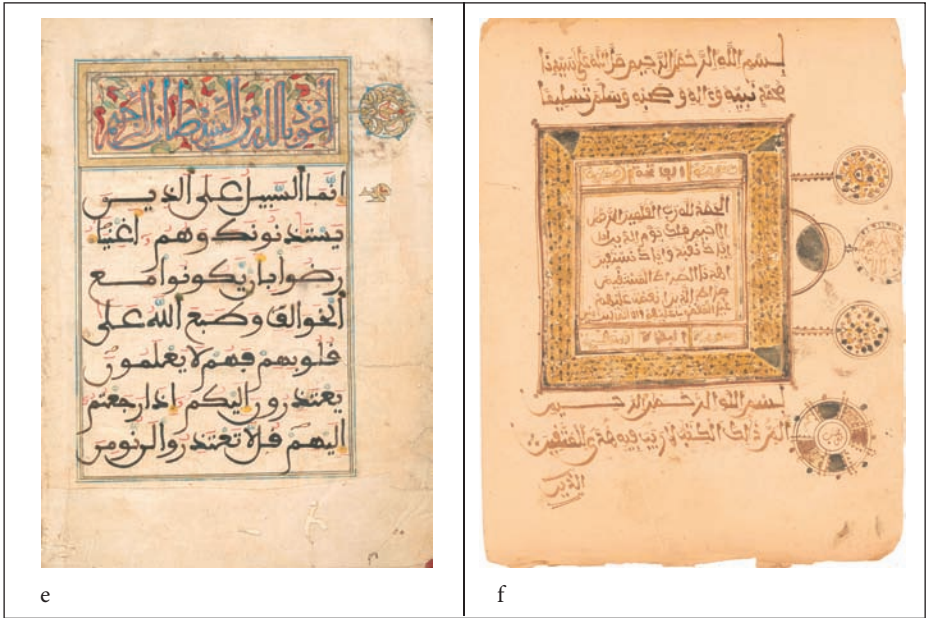 أعوذ بالله من الشيطان الرجيم
إنما السبيل على الذين
يستذنونك وهم أغنيا
رضوا بان يكونوا مع
الخوالف وطبع الله على
قلوبهم فهم لا يعلمون
يعتذرون اليكم اذا رجعتم
اليهم قل لا تعتذروا لن نومن
e
بسم الله الرحمن الرحيم صل الله على سيدنا
محمد نبيه وءاله وصحبه وسلم تسليما
الفاتحة
الحمد لله رب العلمين الرحمن
الرحيم ملك يوم الدين
إياك نعبد وإياك نستعين
اهدنا الصراط المستقيم
صراط الذين أنعمت عليهم
غير المغضوب عليهم ولا الضالين
بسم الله الرحمن الرحيم
الم ذلك الكتب لا ريب فيه هدى للمتقين
الذين
f